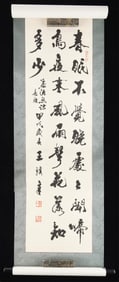 春眠不覺曉處々聞啼
鳥夜來風雨聲花落知
多少
孟浩然詩
甲戌 王